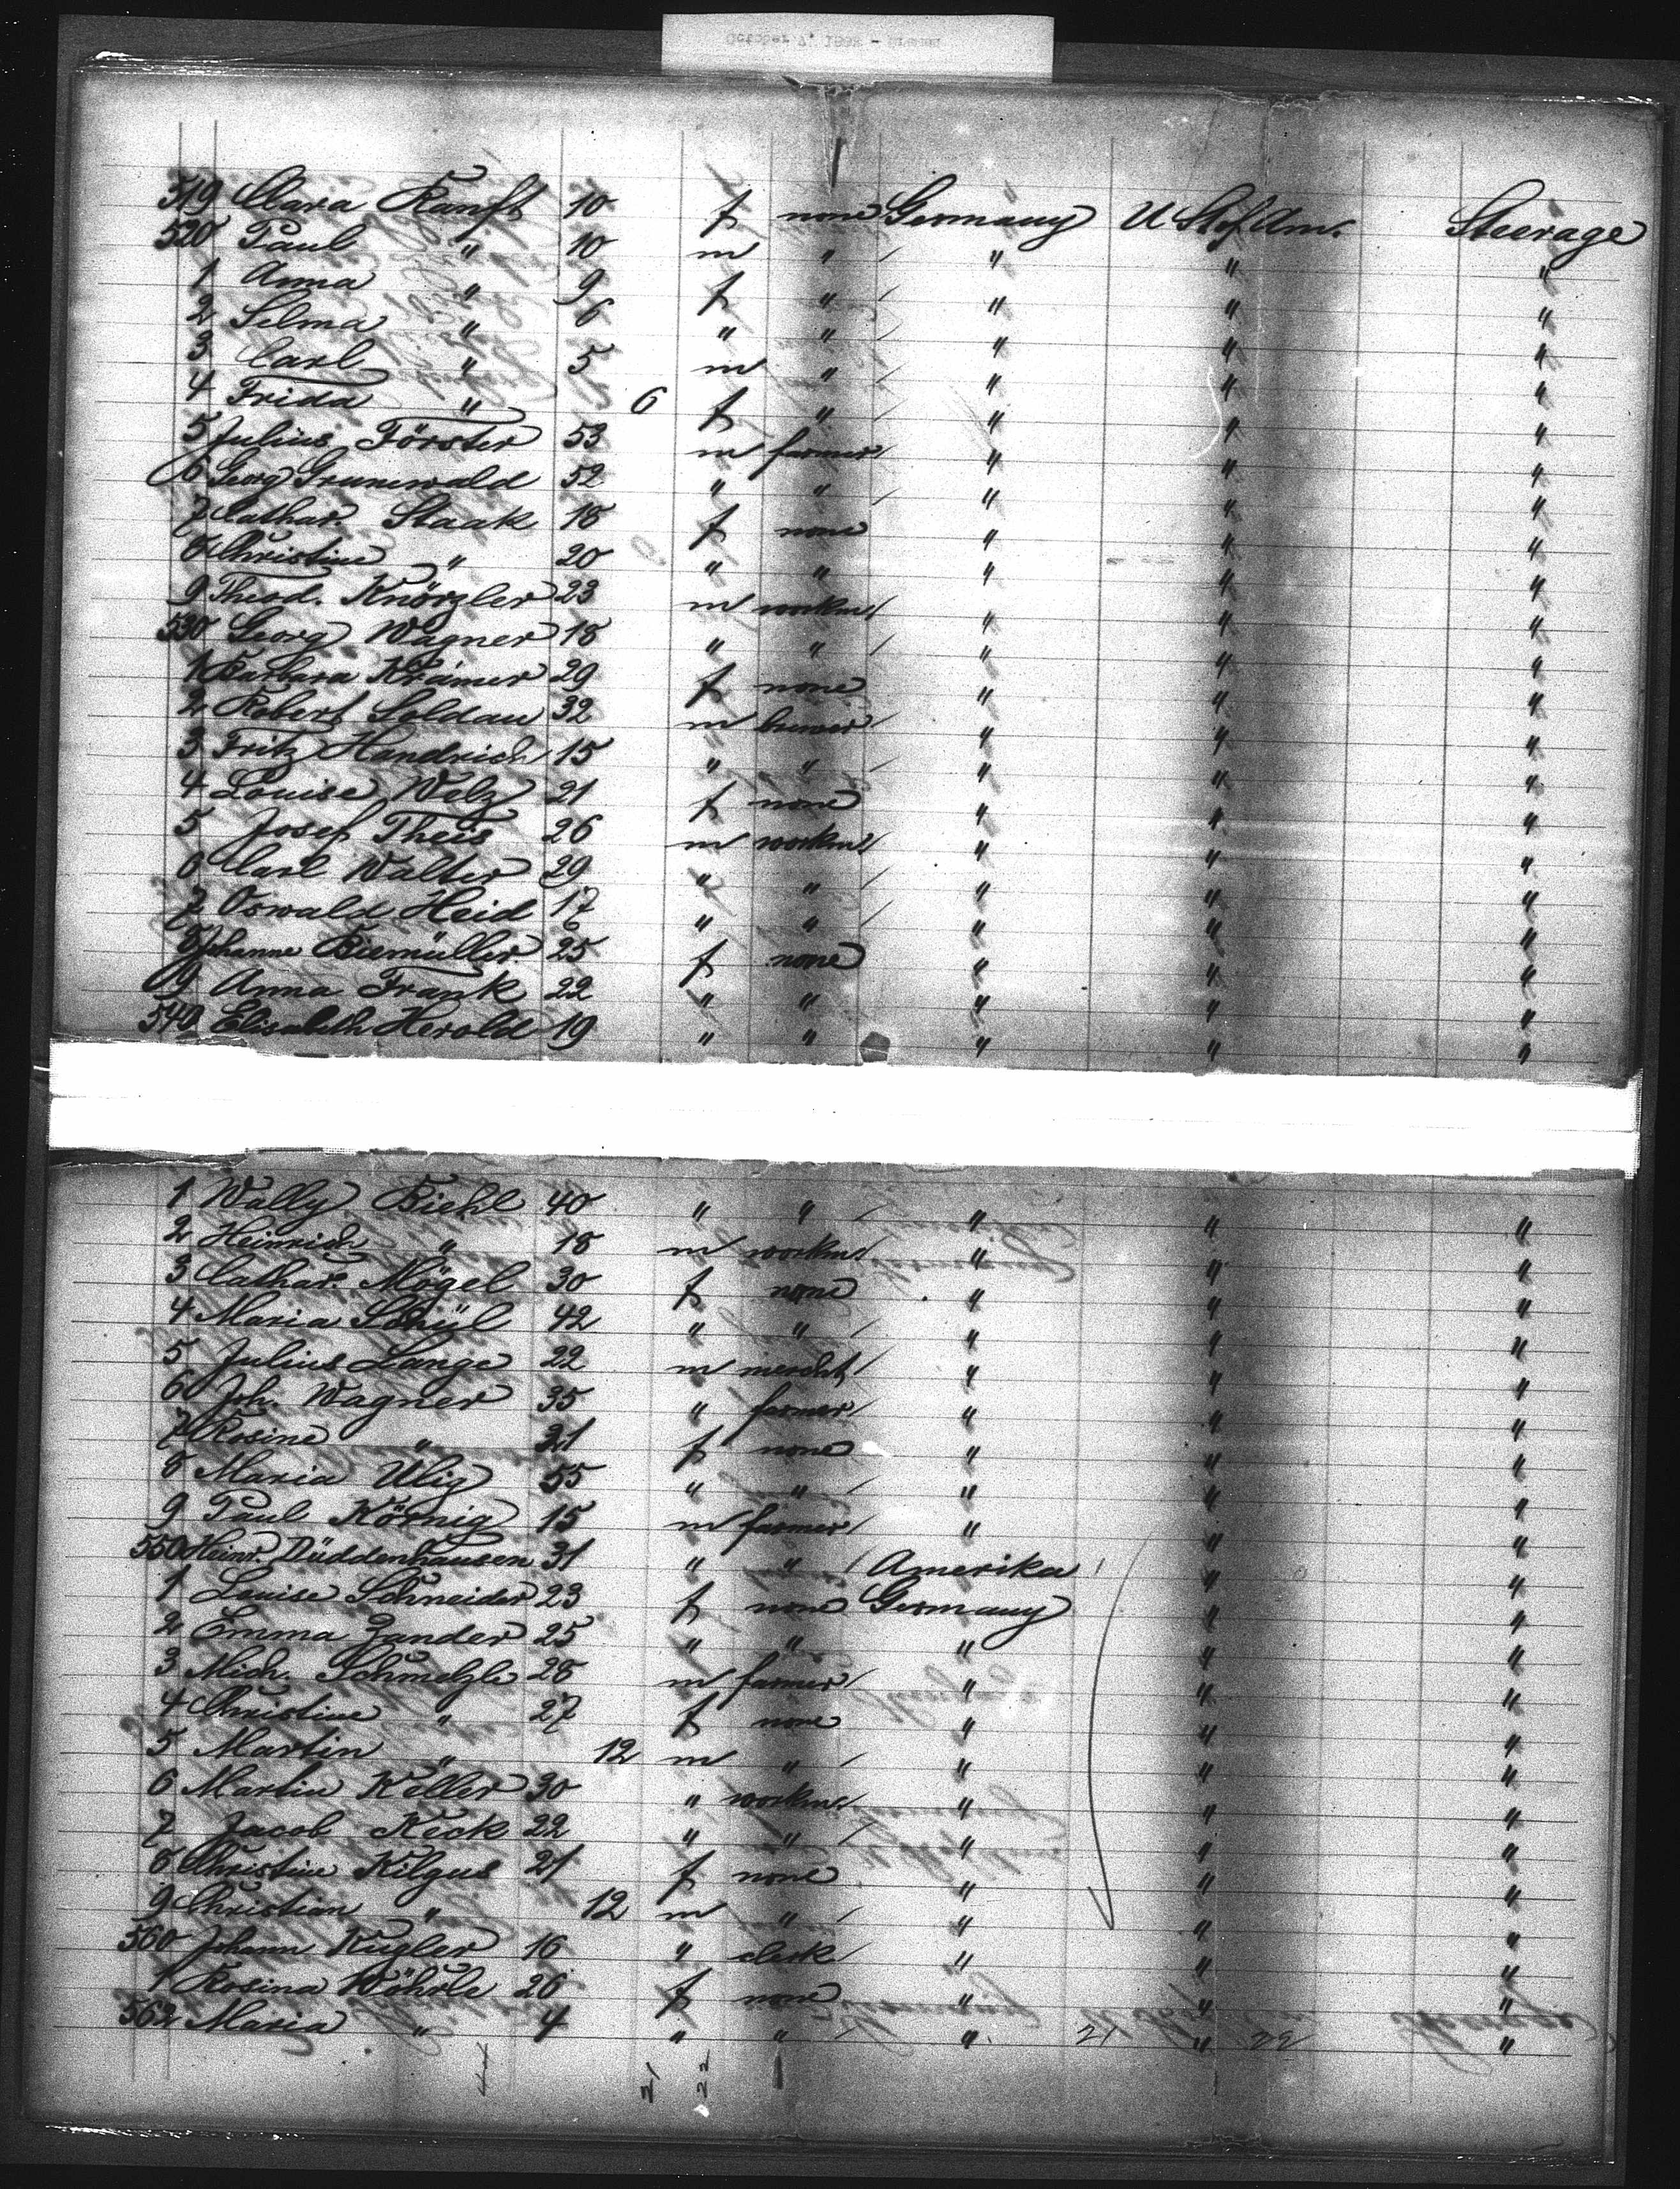 519 Clara Ranft 10 f none Germany U St of Am. Steerage
520 Paul " 10 m " / " " "
1 Anna " 9 f " / " " "
2 Selma " 6 " " / " " "
3 Carl " 5 m " / " " "
4 Frida " 6 f " / " " "
5 Julius Förster 53 m farmer / " " "
6 Georg Grunewald 52 " " / " " "
7 Cathar. Staak 18 f none " " "
8 Christine " 20 " " " " "
9 Theod. Knörzler 23 m workm / " " "
530 Georg Wagner 18 " " / " " "
1 Barbara Krämer 29 f none " " "
2 Robert Soldau 32 m brewer / " " "
3 Fritz Handrich 15 " " / " " "
4 Louise Walz 21 f none " " "
5 Josef Theis 26 m workm / " " "
6 Carl Walter 29 " " / " " "
7 Oswald Heid 17 " " / " " "
8 Johanne Biemüller 25 f none " " "
9 Anna Frank 22 " " " " "
540 Elisabeth Herold 19 " " " " "
1 Wally Biehl 40 " " / " " "
2 Heinrich " 18 m workm / " " "
3 Cathar. Mögel 30 f none " " "
4 Maria 42 " " / " " "
5 Julius Lange 22 m mercht / " " "
6 Joh. Wagner 35 " farmer / " " "
7 Rosine " 21 f none " " "
8 Maria Ulig 55 " " / " " "
9 Paul Körnig 15 m farmer / " " "
550 Heinr. Düddenhausen 31 " " / Amerika " "
1 Louise Schneider 23 f none Germany " "
2 Emma Zander 25 " " " " "
3 Mich. Schmelzle 28 m farmer / " " "
4 Christine " 27 f none " " "
5 Martin " 12 m " / " " "
6 Martin Keller 30 " workm / " " "
7 Jacob Keck 22 " " / " " "
8 Christine Kilgus 21 f none " " "
9 Christian " 12 m " / " " "
560 Johann Kugler 16 " clerk / " " "
1 Rosina Wöhrle 26 f none " " "
562 Maria " 4 " " / " 21 " 22 "
21 22